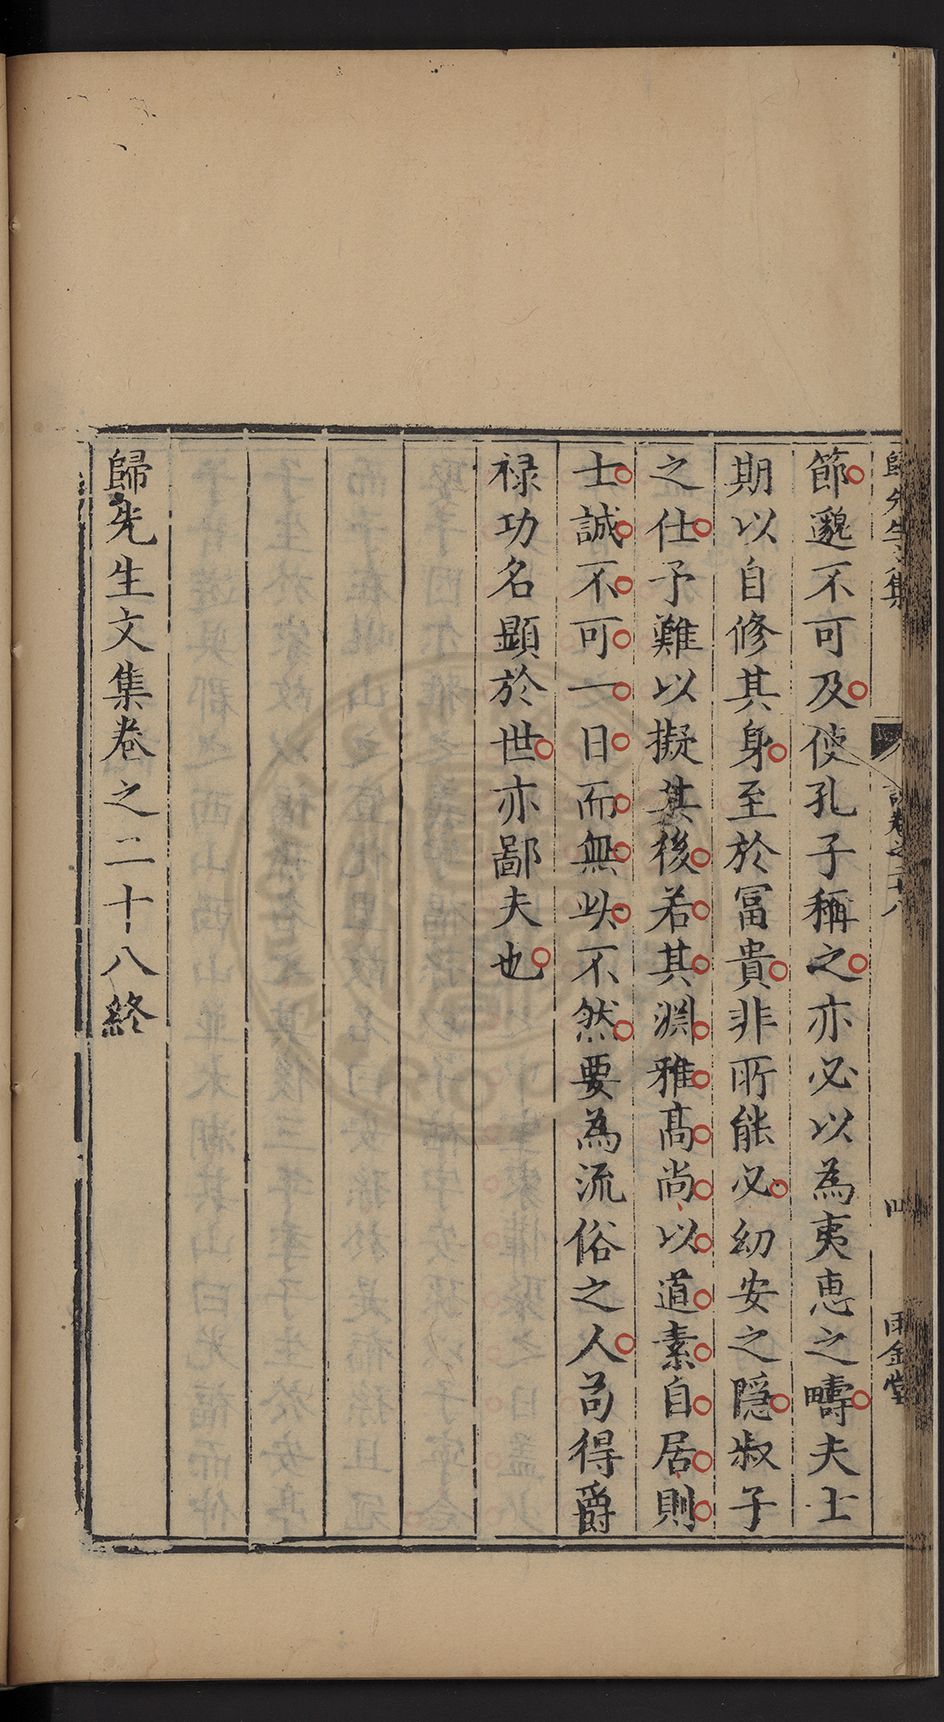 歸先生文集
卷之二十八
四
雨金堂
節邈不可及使孔子稱之亦必以為夷惠之疇夫士
期以自修其身至於冨貴非所能必幼安之隱叔子
之仕予難以擬其後若其淵雅高尚以道素自居則
士誠不可一日而無以不然要為流俗之人茍得爵
禄功名顯於世亦鄙夫也
歸先生文集卷之二十八終